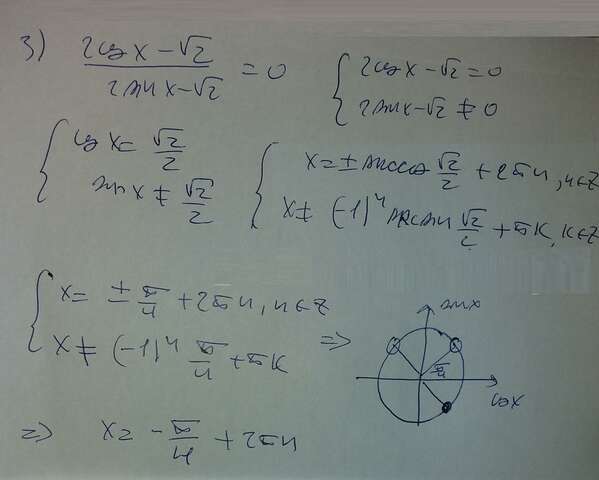 3) (2cos x − √2)/(2sin x − √2) = 0 { 2cos x − √2 = 0
2sin x − √2 ≠ 0
{ cos x = √2/2
sin x ≠ √2/2
{ x = ± arccos √2/2 + 2πn, n∈Z
x ≠ (−1)ⁿ arcsin √2/2 + πk, k∈Z
{ x = ± π/4 + 2πn, n∈Z
x ≠ (−1)ⁿ π/4 + πk
=>
sin x
π/4
cos x
=> x = − π/4 + 2πn